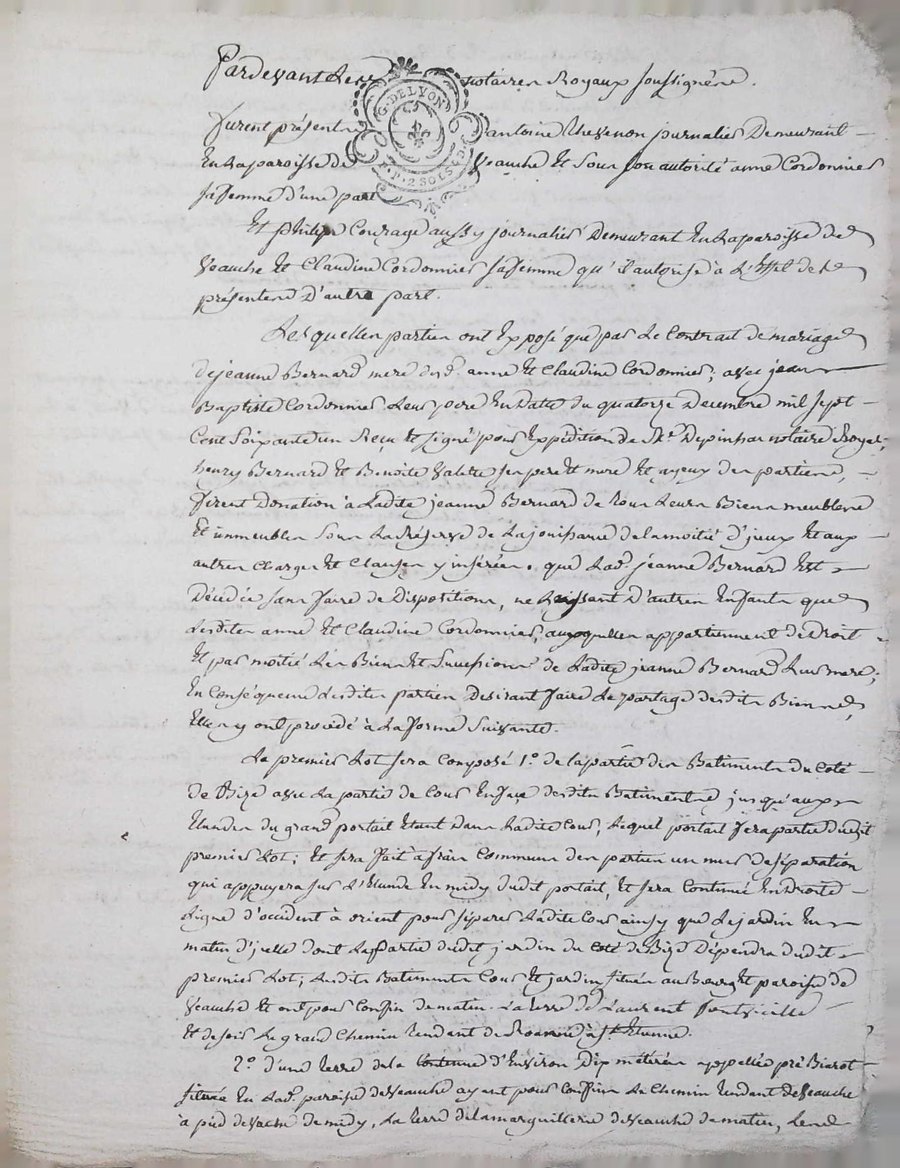 Pardevant Les notaires Royaux soussignés.
G. DE LYON
P. 2 SOLS
furent présents antoine Thevenon journalier Demeurant
En La paroisse de Veauche Et Sous son autorité anne Cordonnier
sa femme d'une part
Et philipe Courage aussy journalier Demeurant En La paroisse de
Veauche Et Claudine Cordonnier sa femme qu'il autorise à L'Effet des
présentes D'autre part.
Lesquelles parties ont Exposé que par Le Contrat de mariage
de jeanne Bernard mere desd. anne Et Claudine Cordonnier, avec jean
Baptiste Cordonnier Leur pere En Datte du quatorze Decembre mil sept
Cent Soixante un Reçu Et signé pour Expédition de Me. Depinhac notaire Royal,
henry Bernard Et Benoite Valette ses pere Et mere Et ayeux des parties,
firent Donation à Ladite jeanne Bernard de tous Leurs Biens meubles
Et immeubles Sous La Réserve de La jouissance de La moitié d'jceux Et aux
autres Charges Et Clauses y inserées. que Lad. jeanne Bernard Est
Décédée sans faire de Dispositions, ne Laissant D'autres Enfants que
Lesdites anne Et Claudine Cordonnier, auxquelles appartiennent de Droit
Et par moitié Les Biens Et Successions de Ladite jeanne Bernard Leur mere;
En Conséquence Lesdites parties Desirant faire Le partage desdits Biens,
Elles y ont procédé à La forme Suivante.
Le premier Lot sera Composé 1°. de La partie des Batiments du Coté
de Bize avec La partie de Cour En face desdits Batiments jusqu'aux
Etandes du grand portail Etant Dans Ladite Cour, Lequel portail fera partie dudit
premier Lot; Et sera fait à frais Commun des parties un mur de séparation
qui appuyera sur L'Etande En midy dudit portail, Et sera Continué En Droite
Ligne d'occident à orient pour séparer Ladite Cour ainsy que Le jardin En
matin d'jcelle dont La partie dudit jardin du Coté de Bize Dépendra dudit
premier Lot; Lesdits Batiments Cour Et jardin situés au Bourg Et paroisse de
Veauche Et ont pour Confin de matin La terre de Laurent
Et de soir Le grand Chemin tendant de Roanne à St. Etienne.
2°. d'une terre de La Contenue d'Environ Dix métérées appellée pré Biarot
située En Lad. paroisse de Veauche ayant pour Confins Le Chemin tendant de Veauche
à pied de Vache de midy, La terre de La marguillerie de Veauche de matin,